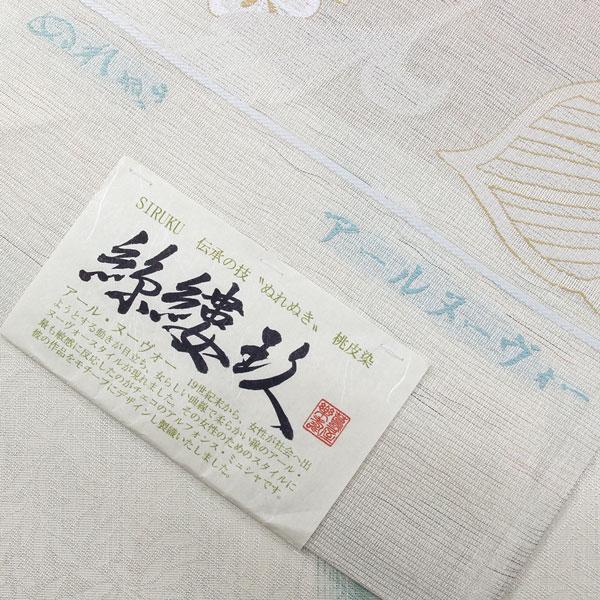 ぬれぬき
アールヌーヴォー
SIRUKU 伝承の技 〝ぬれぬき〟 桃皮染
絲縷玖
アール・ヌーヴォー 19世紀末から、女性が社会へ出
ようとする動きが目立ち、女らしい曲線で柔らかい線のアール・
ヌーヴォースタイルが現れました。その女性のためのスタイルに
最も敏感に反応したのがチェコのアルフォンス・ミュシャです。
彼の作品をモチーフにデザインし製織いたしました。